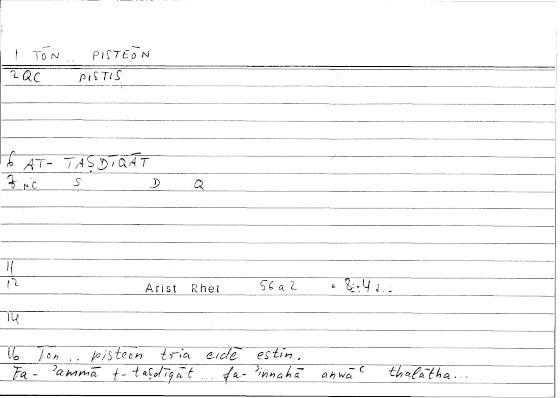 1 TŌN .. PISTEŌN
2 QC PISTIS
6 AT- TAṢDĪQĀT
7 NC Ṣ D Q
11
12 Arist Rhet 56a2
14
16 Tōn .. pisteōn tria eidē estin.
Fa- ʾammā t-taṣdīqāt ... fa-ʾinnahā anwāʿ thalātha...